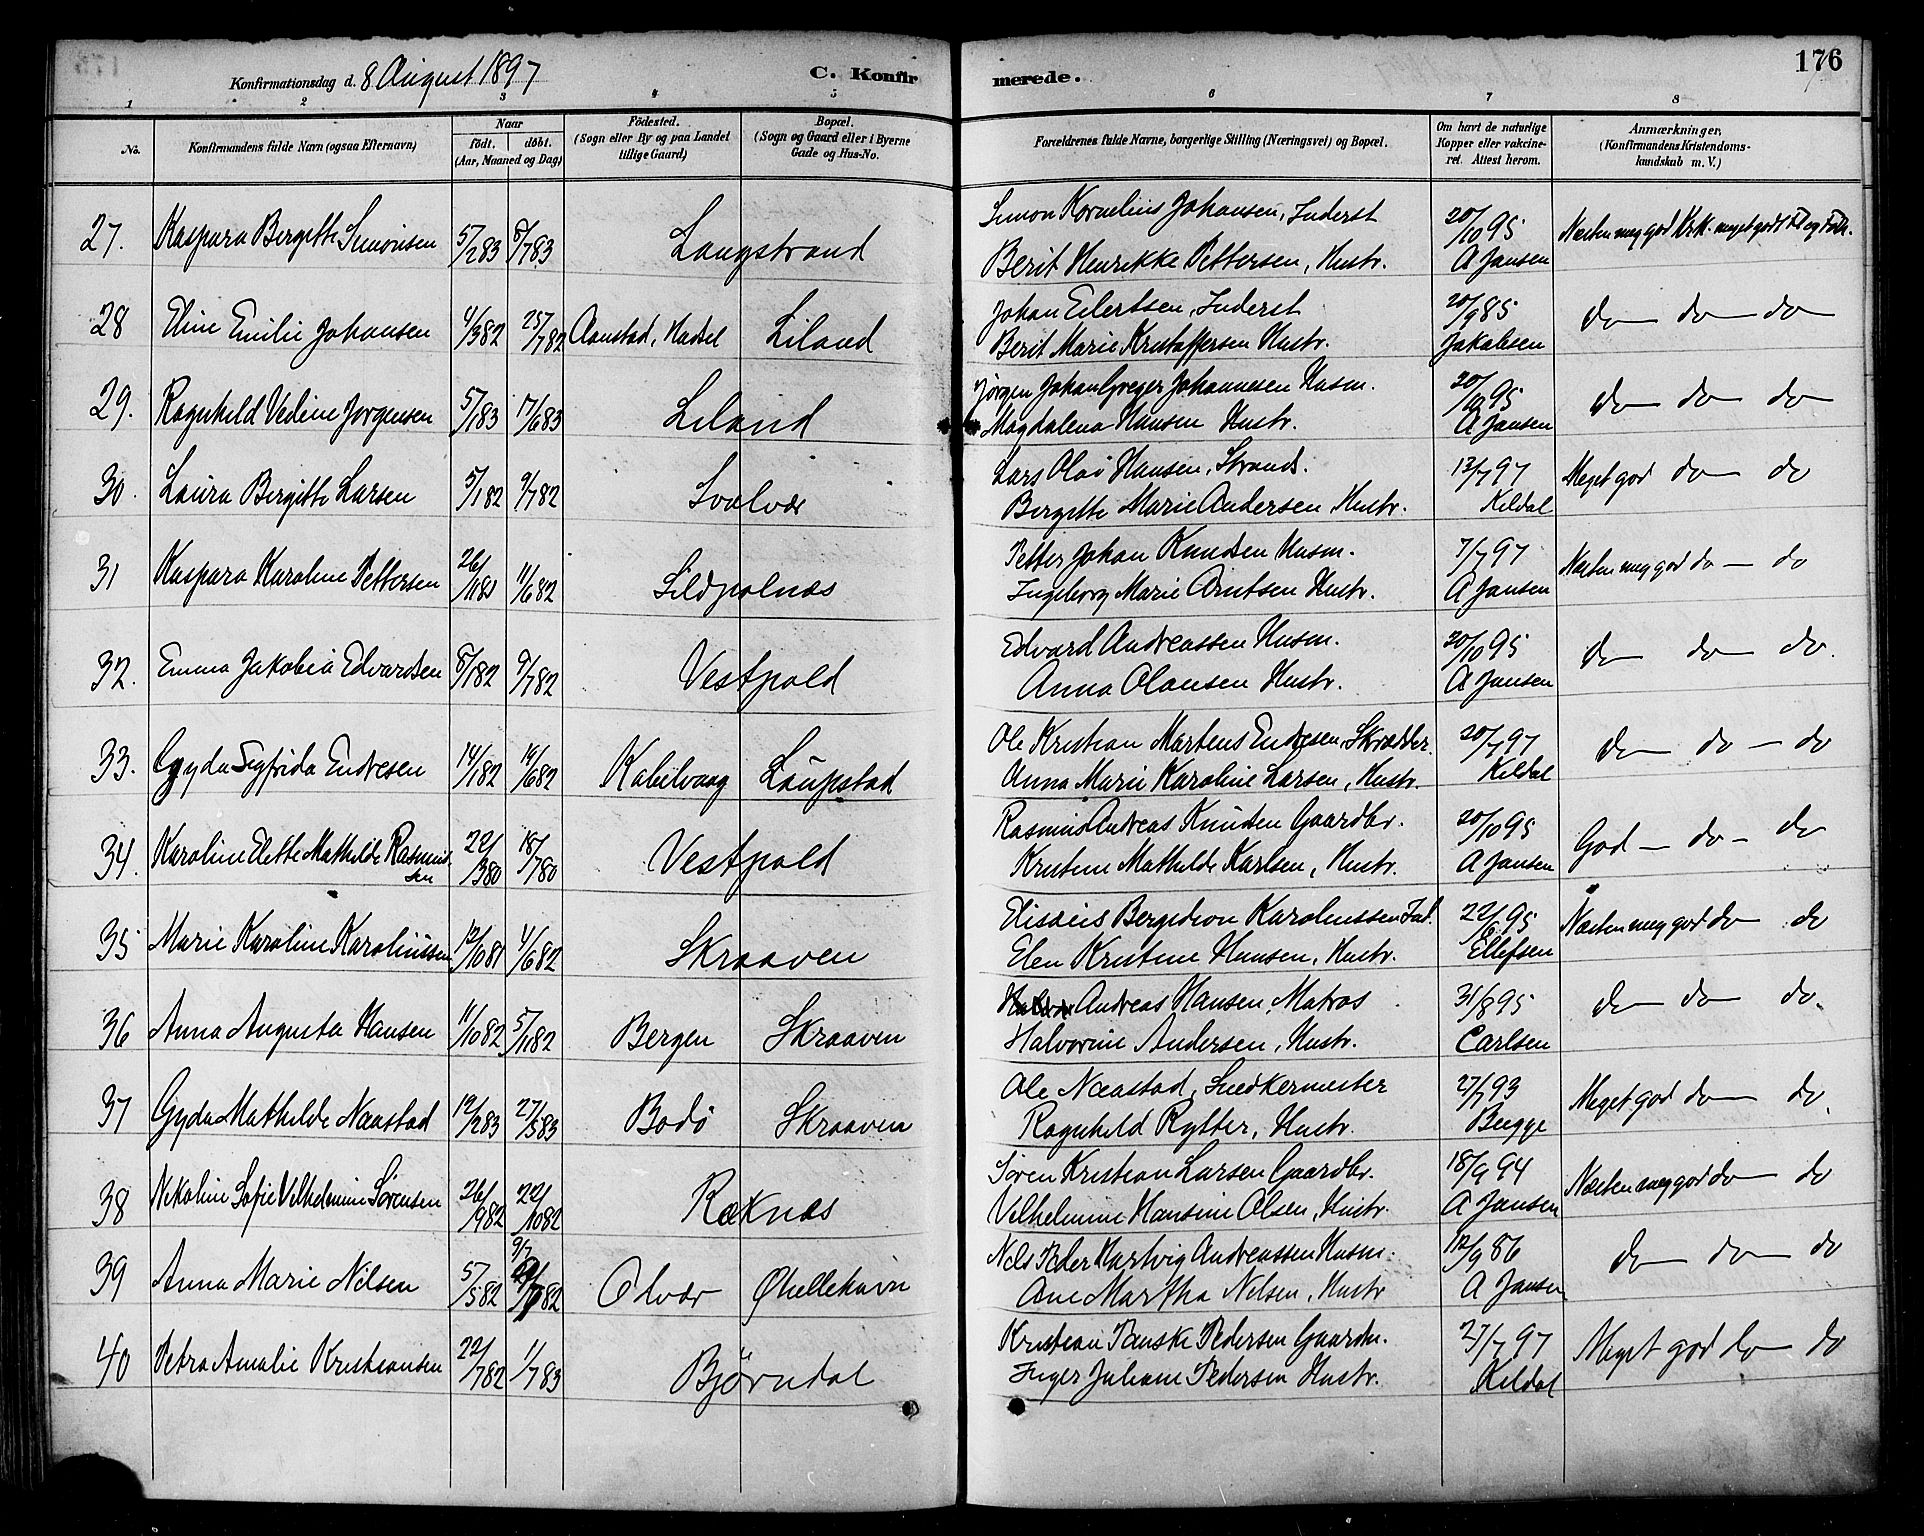 176
Konfirmationsdag d. 8 August 1897
C. Konfirmerede.
1 2 3 4 5 6 7 8
No.
Konfirmandens fulde Navn (ogsaa Efternavn)
Naar
født. døbt.
(Aar, Maaned og Dag)
Födested.
(Sogn eller By og paa Landet tillige Gaard)
Bopæl.
(Sogn og Gaard eller i Byerne Gade og Hus-No.
Forældrenes fulde Navne, borgerlige Stilling (Næringsvei) og Bopæl.
Om havt de naturlige Kopper eller vakcineret. Attest herom.
Anmærkninger,
(Konfirmandens Kristendomskundskab m. V.)
27. Kaspara Bergitte Simonsen 5/2 83 8/7 83 Laugstrand Simon Kornelius Johansen, Inderst 20/10 95 Næsten meg god Krk. meget godt
Berit Henrikke Pettersen, Hustr. A Jansen
28 Eline Emilie Johansen 4/3 82 25/7 82 Aanstad, Hadsel Liland Johan Eilertsen, Inderst 20/9 85 do do do
Berit Marie Kristoffersen Hustr. Jakobsen
29. Ragnhild Vedine Jørgensen 5/1 83 17/6 83 Liland Jørgen Johan Greger Johannesen Husm. 20/10 95 do do do
Magdalena Hansen Hustr. A Jansen
30. Laura Bergitte Larsen 5/1 82 9/7 82 Svolvær Lars Olai Hansen, Strands. 13/7 97 Meget god do do
Bergitte Marie Andersen, Hustr. Keldal
31 Kaspara Karoline Pettersen 26/11 81 11/6 82 Sildpolnæs Petter Johan Knudsen Husm. 7/7 97 Næsten meg god do do
Ingeborg Marie Arntsen Hustr. A Jansen
32. Emma Jakobia Edvardsen 8/1 82 9/7 82 Vestpold Edvard Andreassen Husm. 20/10 95 do do do.
Anna Olausen Hustr. A Jansen
33. Gyda Sigfrida Endresen 14/1 82 19/6 82 Kabelvaag Laupstad Ole Kristian Martens Endresen, Skrædder. 20/7 97 do do do
Anna Marie Karoline Larsen, Hustr. Keldal
34. Karoline Elette Mathilde Rasmussen 22/3 80 18/7 80 Vestpold Rasmus Andreas Knudsen Gaardbr. 20/10 95 God do do
Kristine Mathilde Karlsen, Hustr. A Jansen
35 Marie Karoline Karoliussen 12/10 81 4/6 82 Skraaven Elisæus Bergedion Karoliussen Ind. 22/6 95 Næsten meg god do do
Elen Kristine Hansen, Hustr. Ellefsen
36 Anna Augusta Hansen 11/10 82 5/11 82 Bergen Skraaven Andreas Hansen, Matros 31/8 95 do do do.
Halvorine Andersen, Hustr. Carlsen
37 Gyda Mathilde Næestad 19/2 83 27/5 83 Bodö Skraaven Ole Næestad, Snedkermester 27/7 93 Meget god do do.
Ragnhild Rytter, Hustr. Bugge
38 Nikoline Sofie Vilhelmine Sørensen 26/9 82 22/10 82 Ræknæs Søren Kristian Larsen Gaardbr. 18/9 94 Næsten meg god do do
Vilhelmine Hansine Olsen, Hustr. A Jansen
39 Anna Marie Nilsen 5/5 82 9/7 82 Olvær Øhellehavn Nils Peder Hartvig Andreassen Husm. 12/9 86 do do do
Ane Martha Nilsen, Hustr A Jansen
40 Petra Amalie Kristiansen 22/7 82 1/7 83 Bjørndal Kristian Tanske Pedersen Gaardm. 27/7 97 Meget god do do
Inger Juliane Pedersen Hustr. Keldal